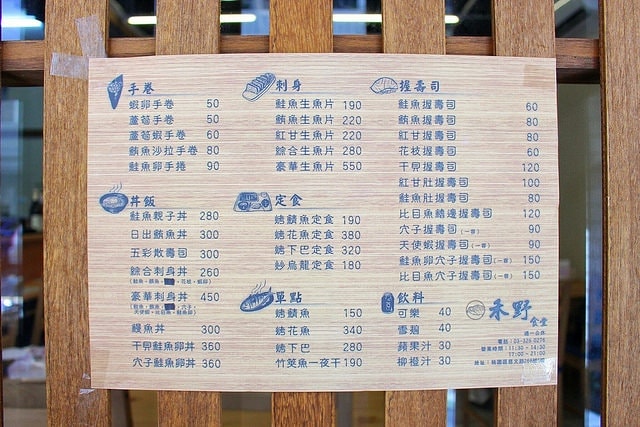 手卷
蝦卵手卷 50
蘆筍手卷 50
蘆筍蝦手卷 60
鮪魚沙拉手卷 80
鮭魚卵手捲 90
刺身
鮭魚生魚片 190
鮪魚生魚片 220
紅甘生魚片 220
綜合生魚片 280
豪華生魚片 550
握壽司
鮭魚握壽司 60
鮪魚握壽司 80
紅甘握壽司 80
花枝握壽司 60
干貝握壽司 120
紅甘肚握壽司 100
鮭魚肚握壽司 80
比目魚鰭邊握壽司 120
穴子握壽司(一貫) 90
天使蝦握壽司(一貫) 90
鮭魚卵穴子握壽司(一貫) 150
比目魚穴子握壽司(一貫) 150
丼飯
鮭魚親子丼 280
日出鮪魚丼 300
五彩散壽司 300
綜合刺身丼 260
豪華刺身丼 450
鰻魚丼 300
干貝鮭魚卵丼 360
穴子鮭魚卵丼 360
定食
烤鯖魚定食 190
烤花魚定食 380
烤下巴定食 320
炒烏龍定食 180
單點
烤鯖魚 150
烤花魚 340
烤下巴 280
竹筴魚一夜干 190
飲料
可樂 40
雪碧 40
蘋果汁 30
柳橙汁 30
禾野
食堂
週一公休
電話:03-325 0276
營業時間:11:30 - 14:30
17:00 - 21:00